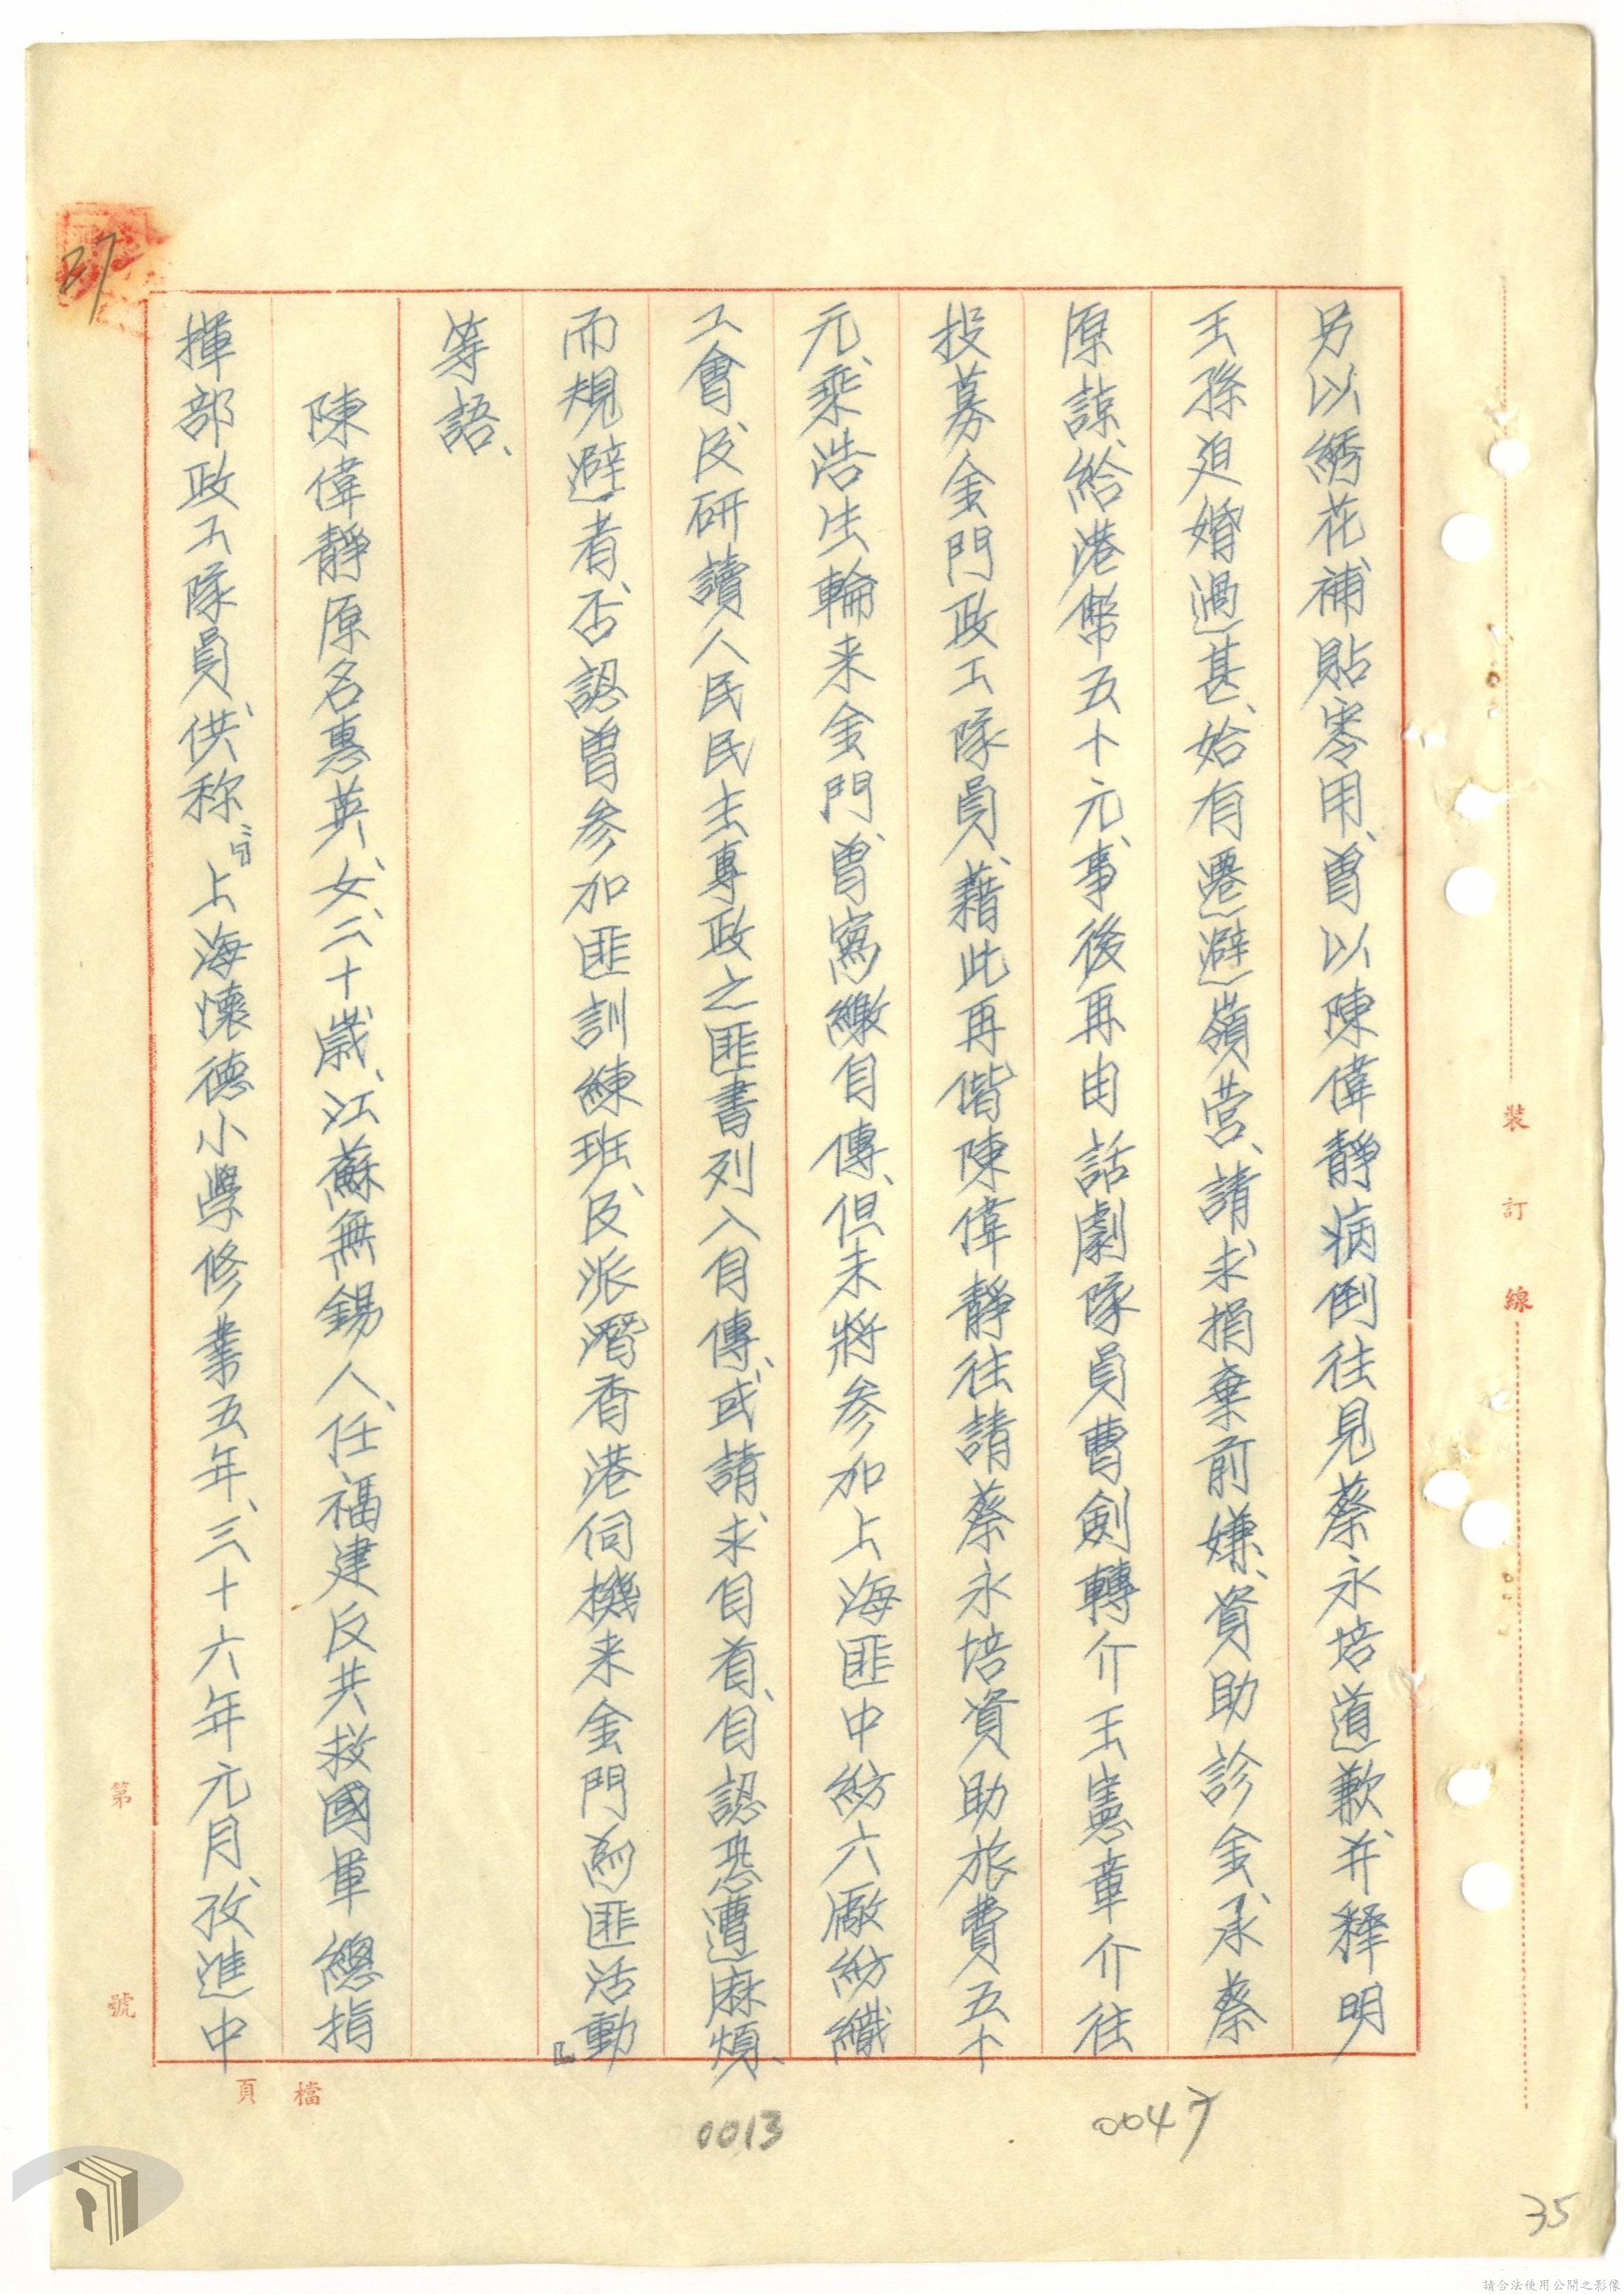 另以綉花補貼零用、曾以陳偉靜病倒往見蔡永培道歉、并釋明
王孫迫婚過甚、始有遷避嶺营、請求捐棄前嫌、資助診金、承蔡
原諒、給港幣五十元、事後再由話劇隊員曹劍轉介王憲章介往
投募金門政工隊員、藉此再偕陳偉靜往請蔡永培資助旅費五十
元、乘浩生輪来金門、曾寫繳自傳、但未將参加上海匪中紡六廠紡織
工會及研讀人民民主專政之匪書列入自傳、或請求自首、自認恐遭麻煩、
而規避者、否認曾参加匪訓練班、及派潛香港伺機来金門為匪活動」
等語、
陳偉靜原名惠英、女、二十歲、江蘇無錫人、任福建反共救國軍總指
揮部政工隊員、供称：「上海懷德小學修業五年、三十六年元月、攷進中
裝訂線
第 號
檔
頁
27
0013
0047
35
請合法使用公開之影像